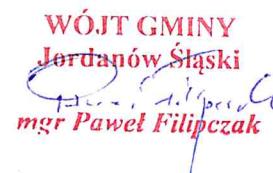 WÓJT GMINY
Jordanów Śląski
mgr Paweł Filipczak